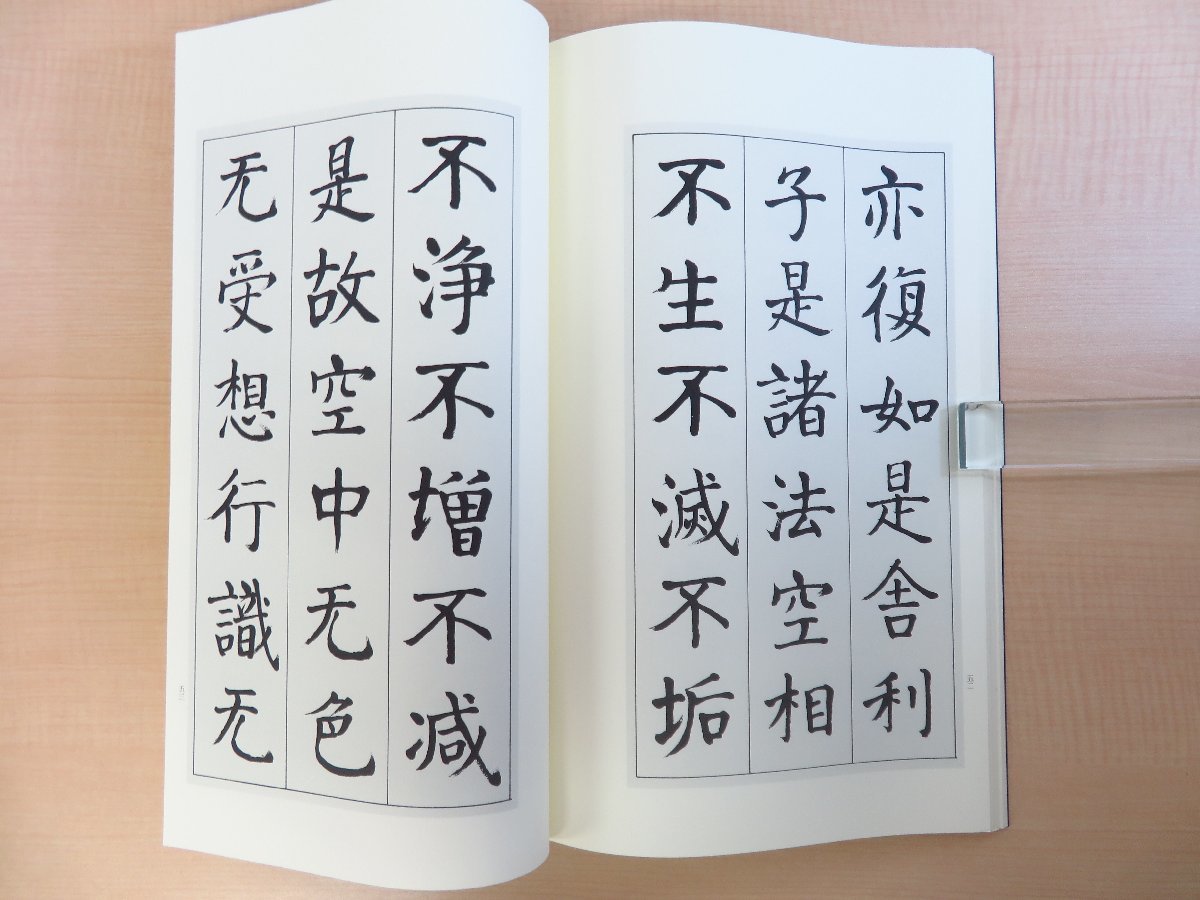 亦復如是舎利
子是諸法空相
不生不滅不垢
不浄不増不減
是故空中无色
无受想行識无